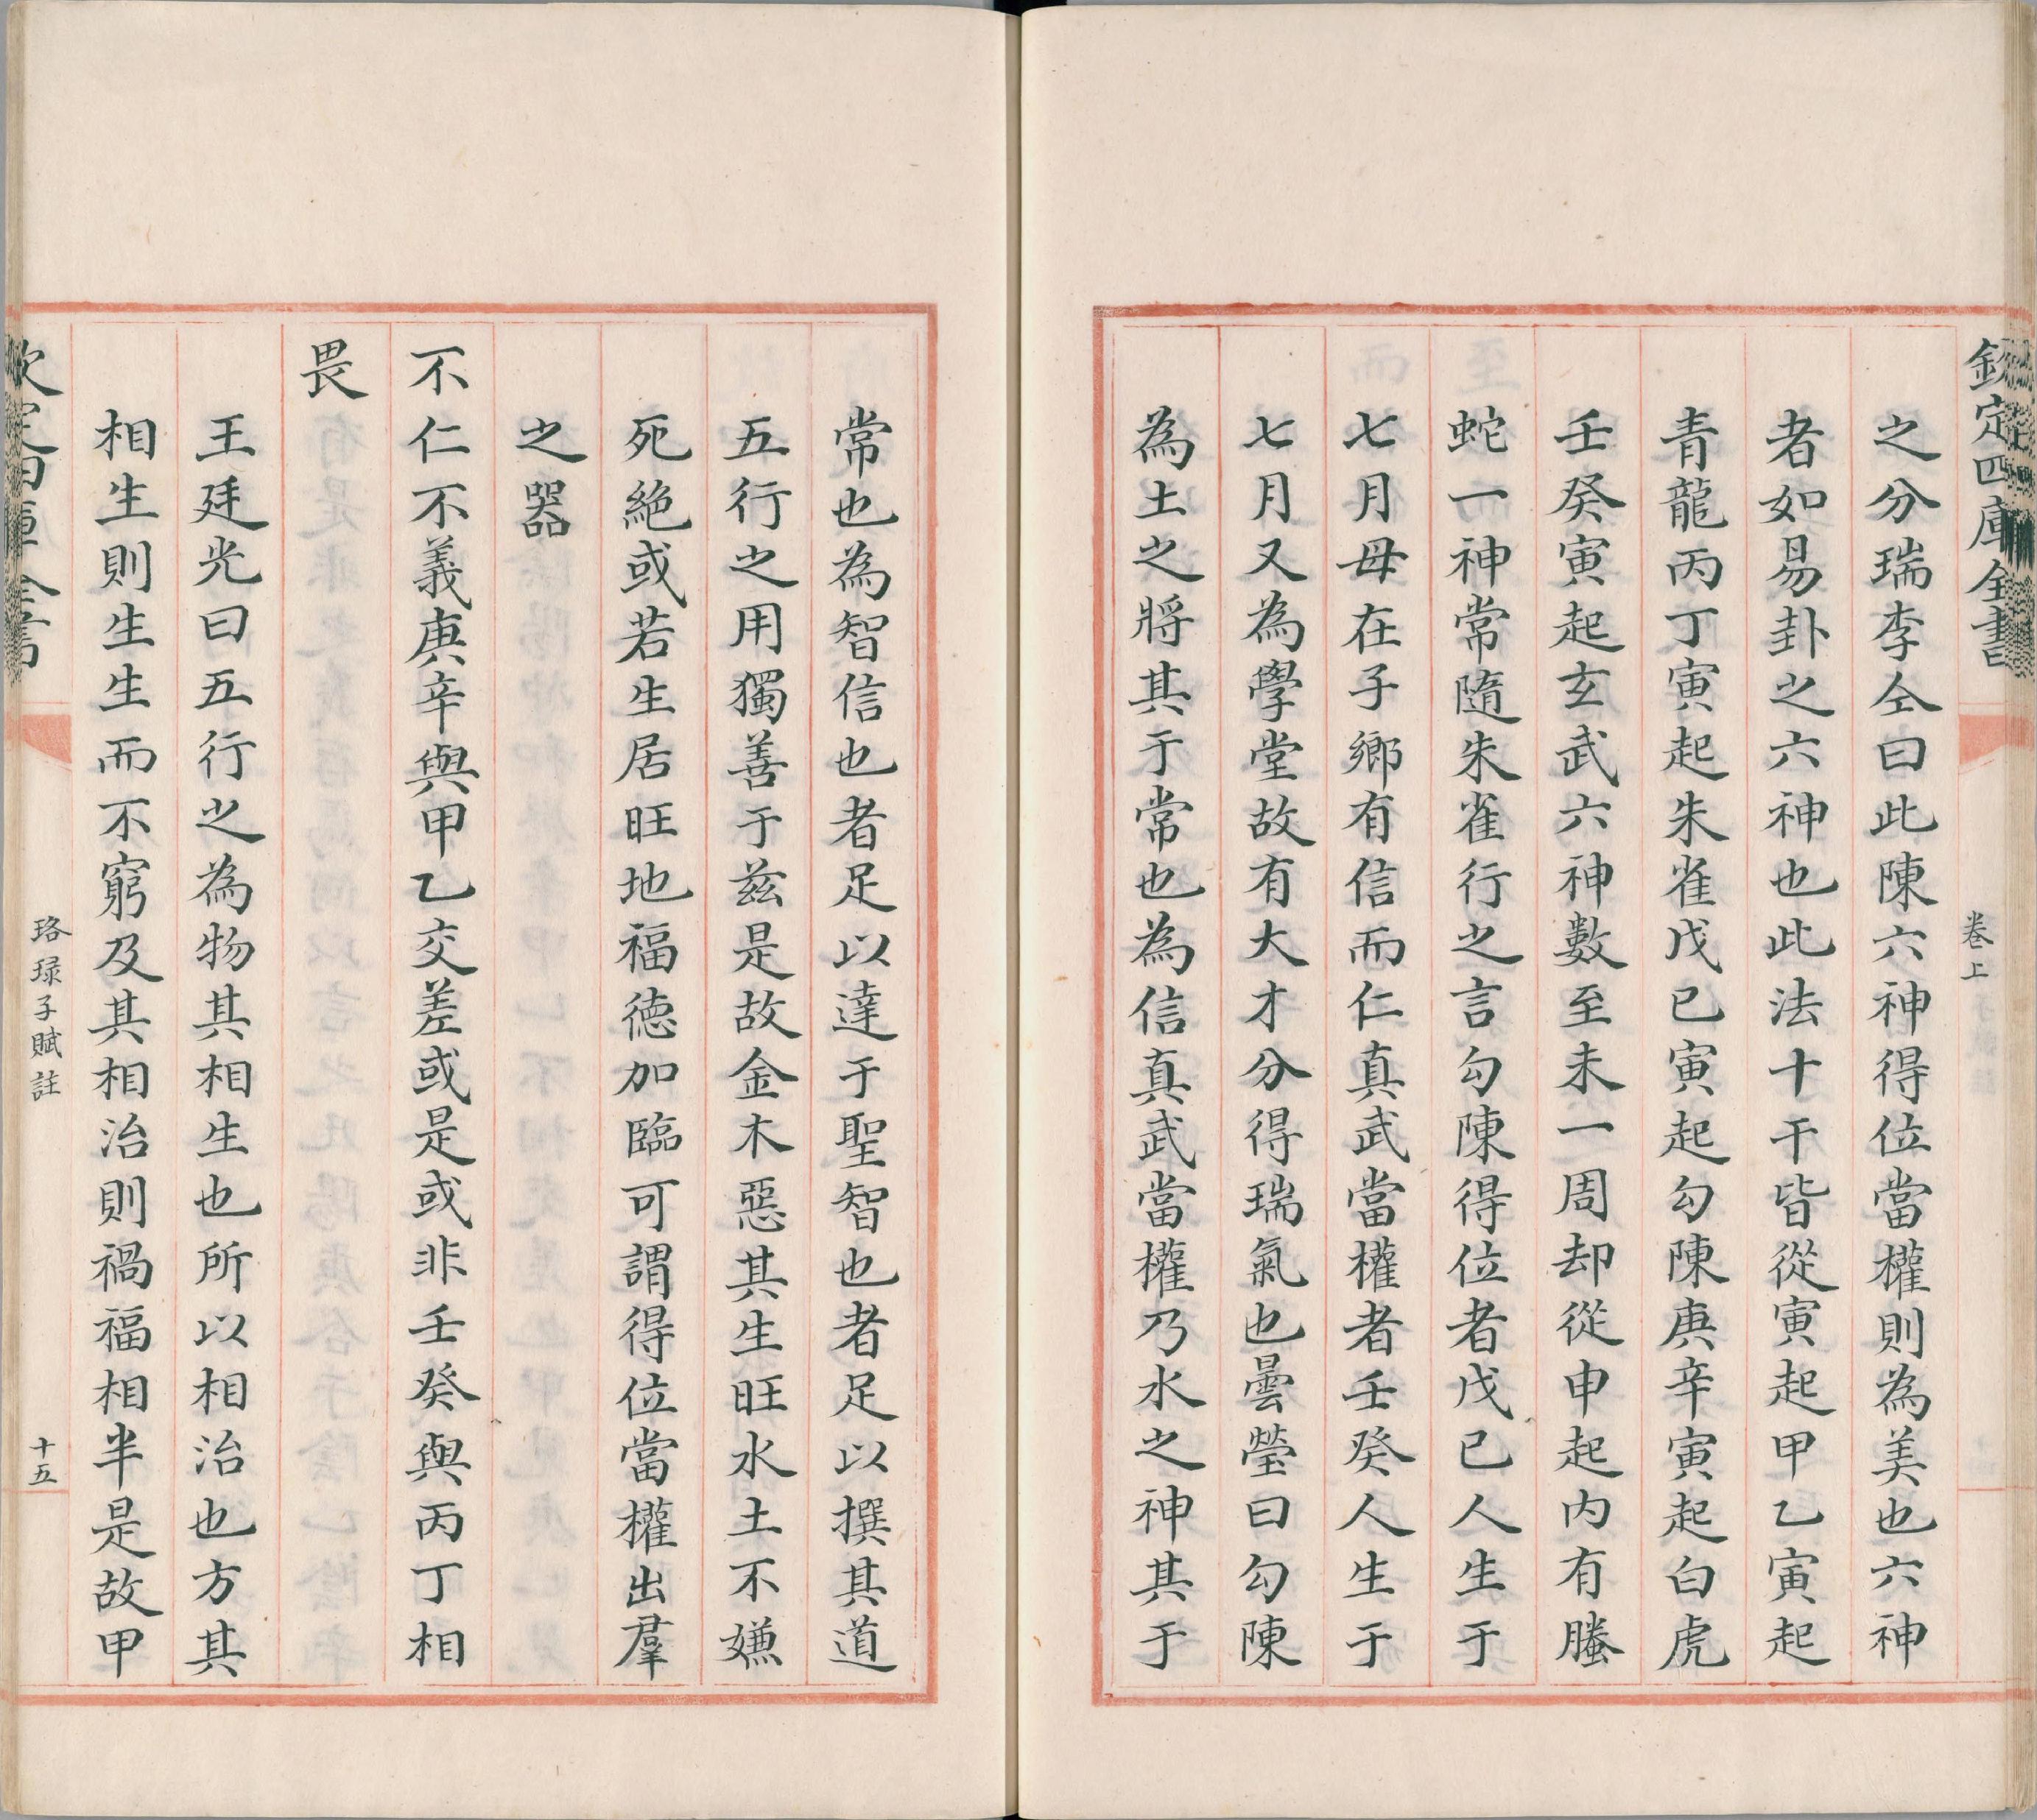 欽定四庫全書
卷上
之分瑞李仝曰此陳六神得位當權則為美也六神
者如易卦之六神也此法十干皆從寅起甲乙寅起
青龍丙丁寅起朱雀戊已寅起勾陳庚辛寅起白虎
壬癸寅起玄武六神數至未一周却從申起内有螣
蛇一神常隨朱雀行之言勾陳得位者戊已人生于
七月母在子鄉有信而仁真武當權者壬癸人生于
七月又為學堂故有大才分得瑞氣也曇瑩曰勾陳
為土之將其于常也為信真武當權乃水之神其于
常也為智信也者足以達于聖智也者足以撰其道
五行之用獨善于茲是故金木惡其生旺水土不嫌
死絕或若生居旺地福德加臨可謂得位當權出羣
之器
不仁不義庚辛與甲乙交差或是或非壬癸與丙丁相
畏
王廷光曰五行之為物其相生也所以相治也方其
相生則生生而不窮及其相治則禍福相半是故甲
欽定四庫全書
珞琭子賦註
十五